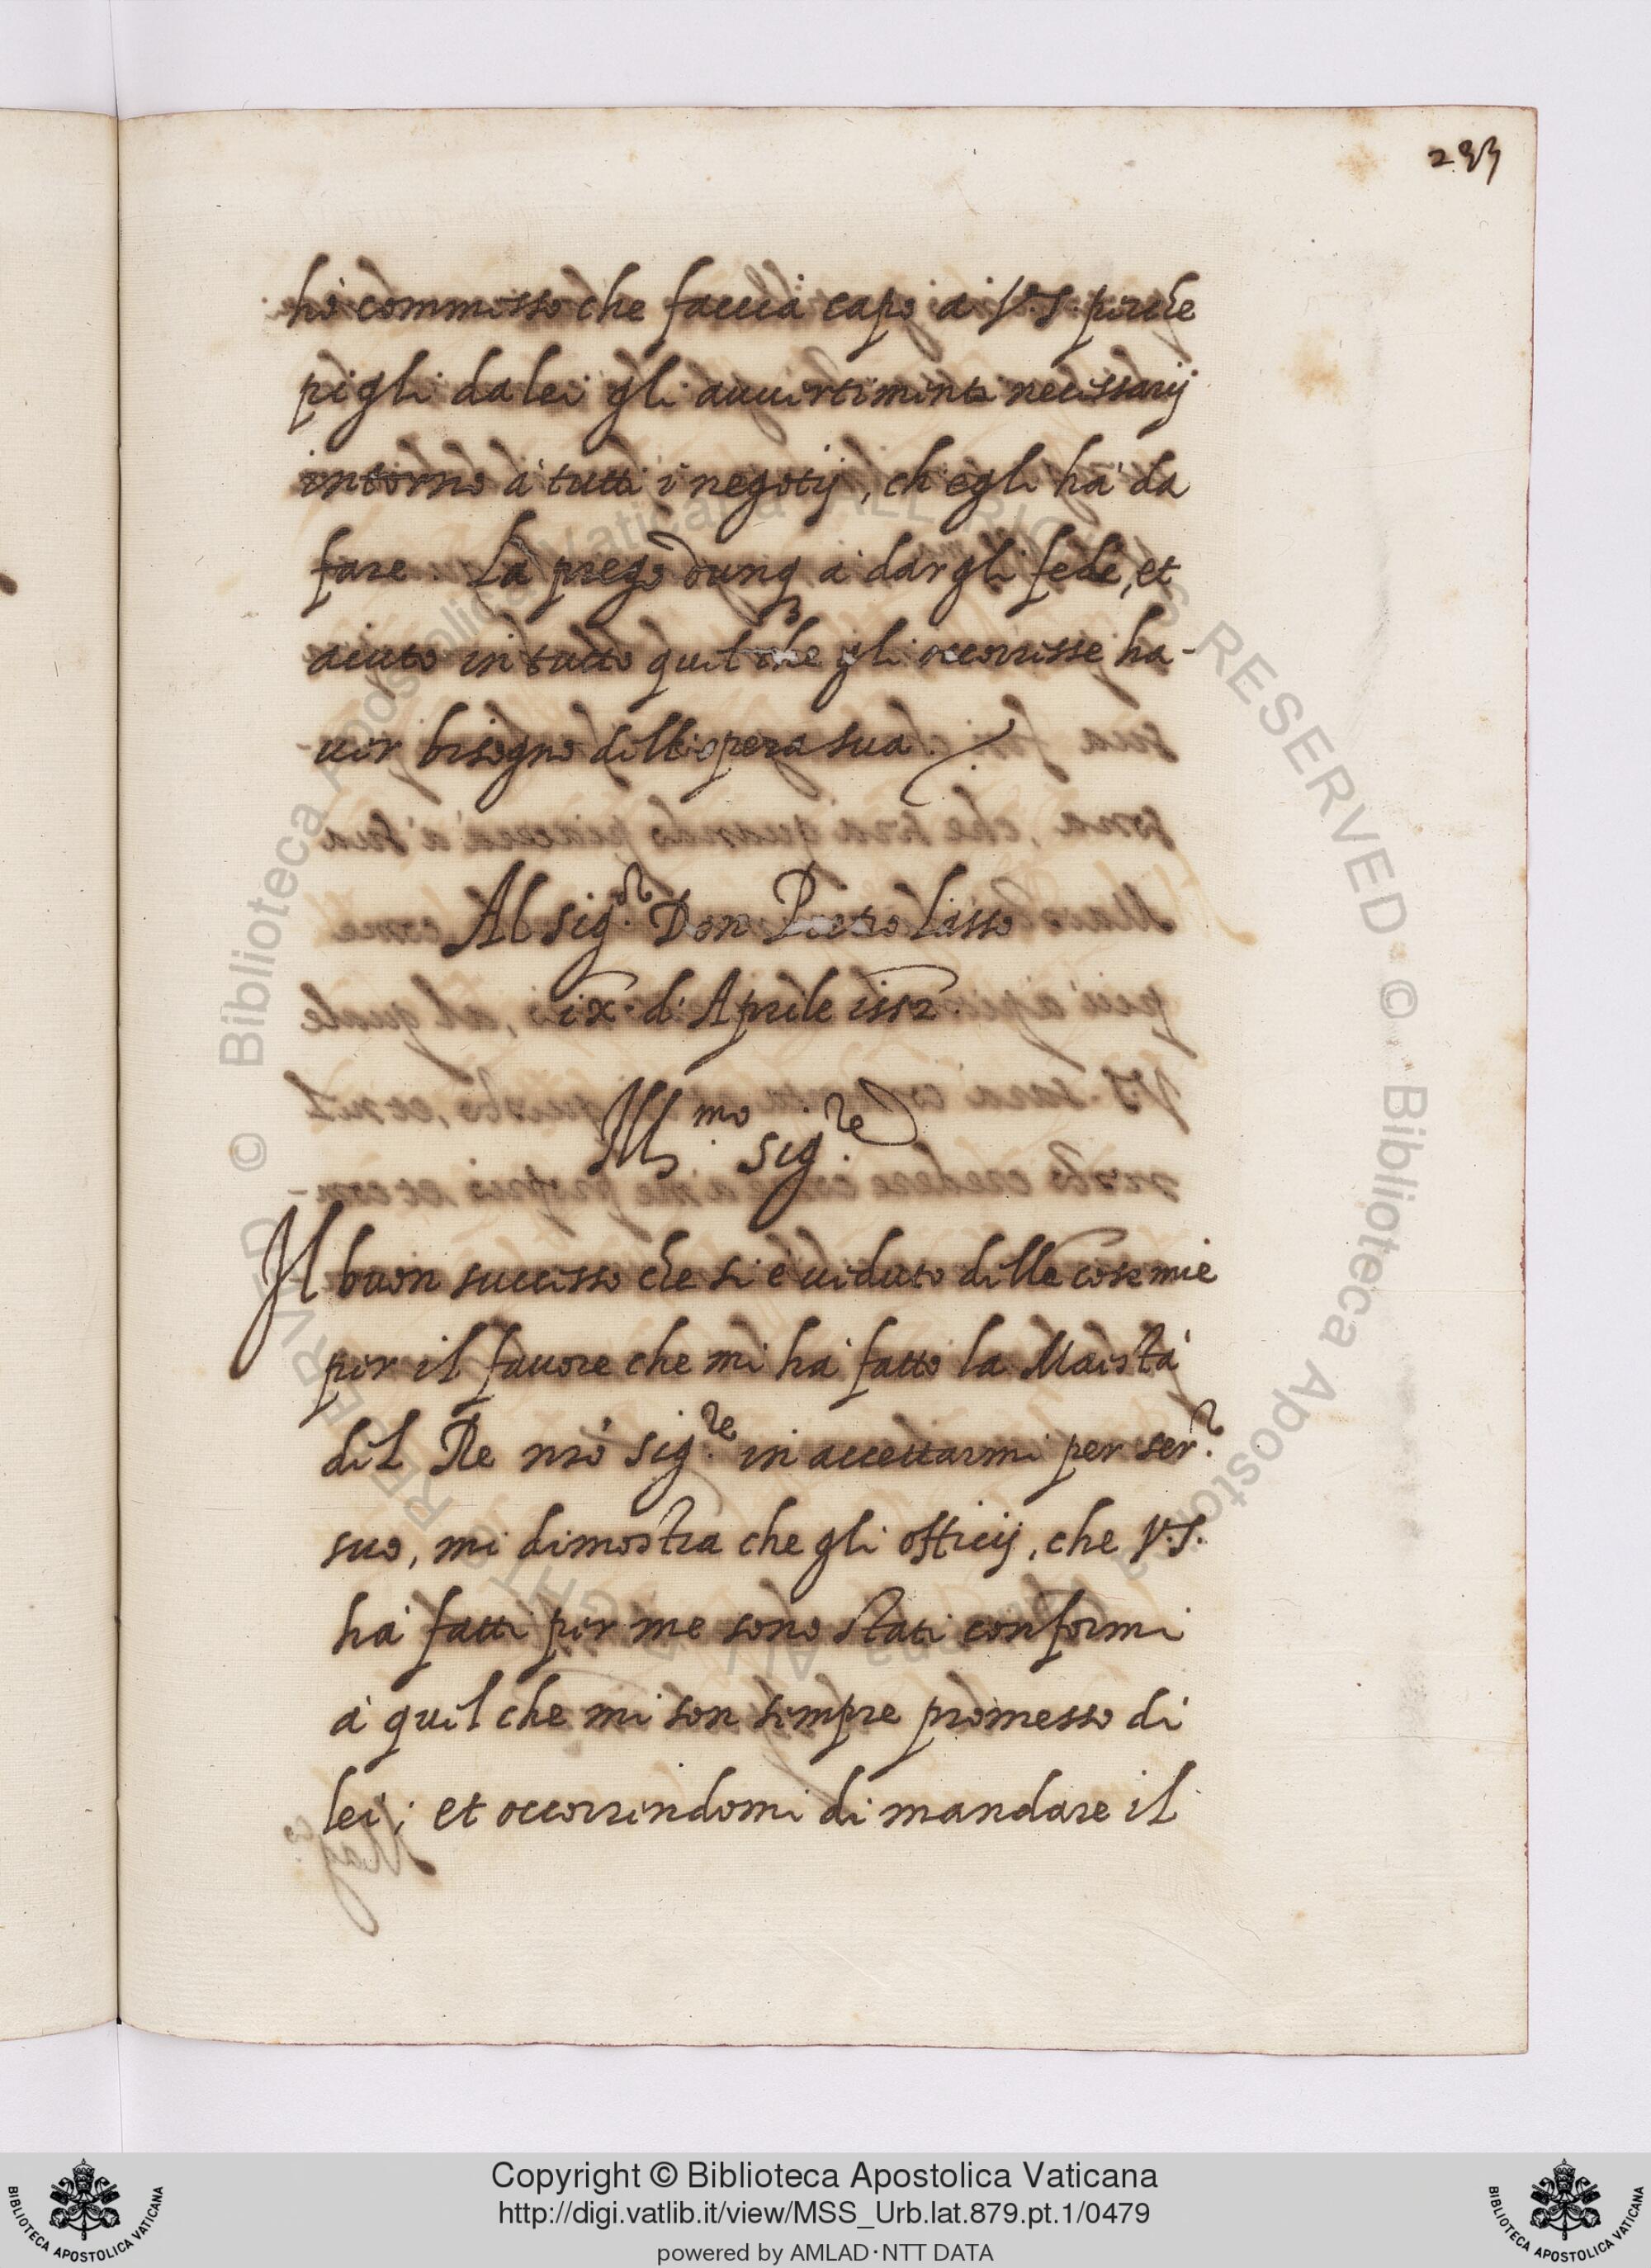 293
hò commesso che faccia capo a V.S. perche
pigli da lei gli auuertimenti necessarij
intorno à tutti i negotij, ch'egli hà da
fare. La prego dunq à dargli fede, et
aiuto in tutto quel che gli occorresse ha-
uer bisogno dell'opera sua.
Al sig.or Don Pietro Lasso
ix. di Aprile 1552.
Ill.mo sig.re
Il buon successo che si è ueduto delle cose mie
per il fauore che mi hà fatto la Maestà
del Re nrò sig.re in accettarmi per ser.r
suo, mi dimostra che gli officij, che V.S.
hà fatti per me sono stati conformi
à quel che mi son sempre promesso di
lei; et occorrendomi di mandare il
© Biblioteca Apostolica Vaticana ALL RIGHTS RESERVED © Biblioteca Apostolica Vaticana ALL RIGHTS RESERVED
Copyright © Biblioteca Apostolica Vaticana
http://digi.vatlib.it/view/MSS_Urb.lat.879.pt.1/0479
powered by AMLAD·NTT DATA
BIBLIOTECA APOSTOLICA VATICANA
BIBLIOTECA APOSTOLICA VATICANA